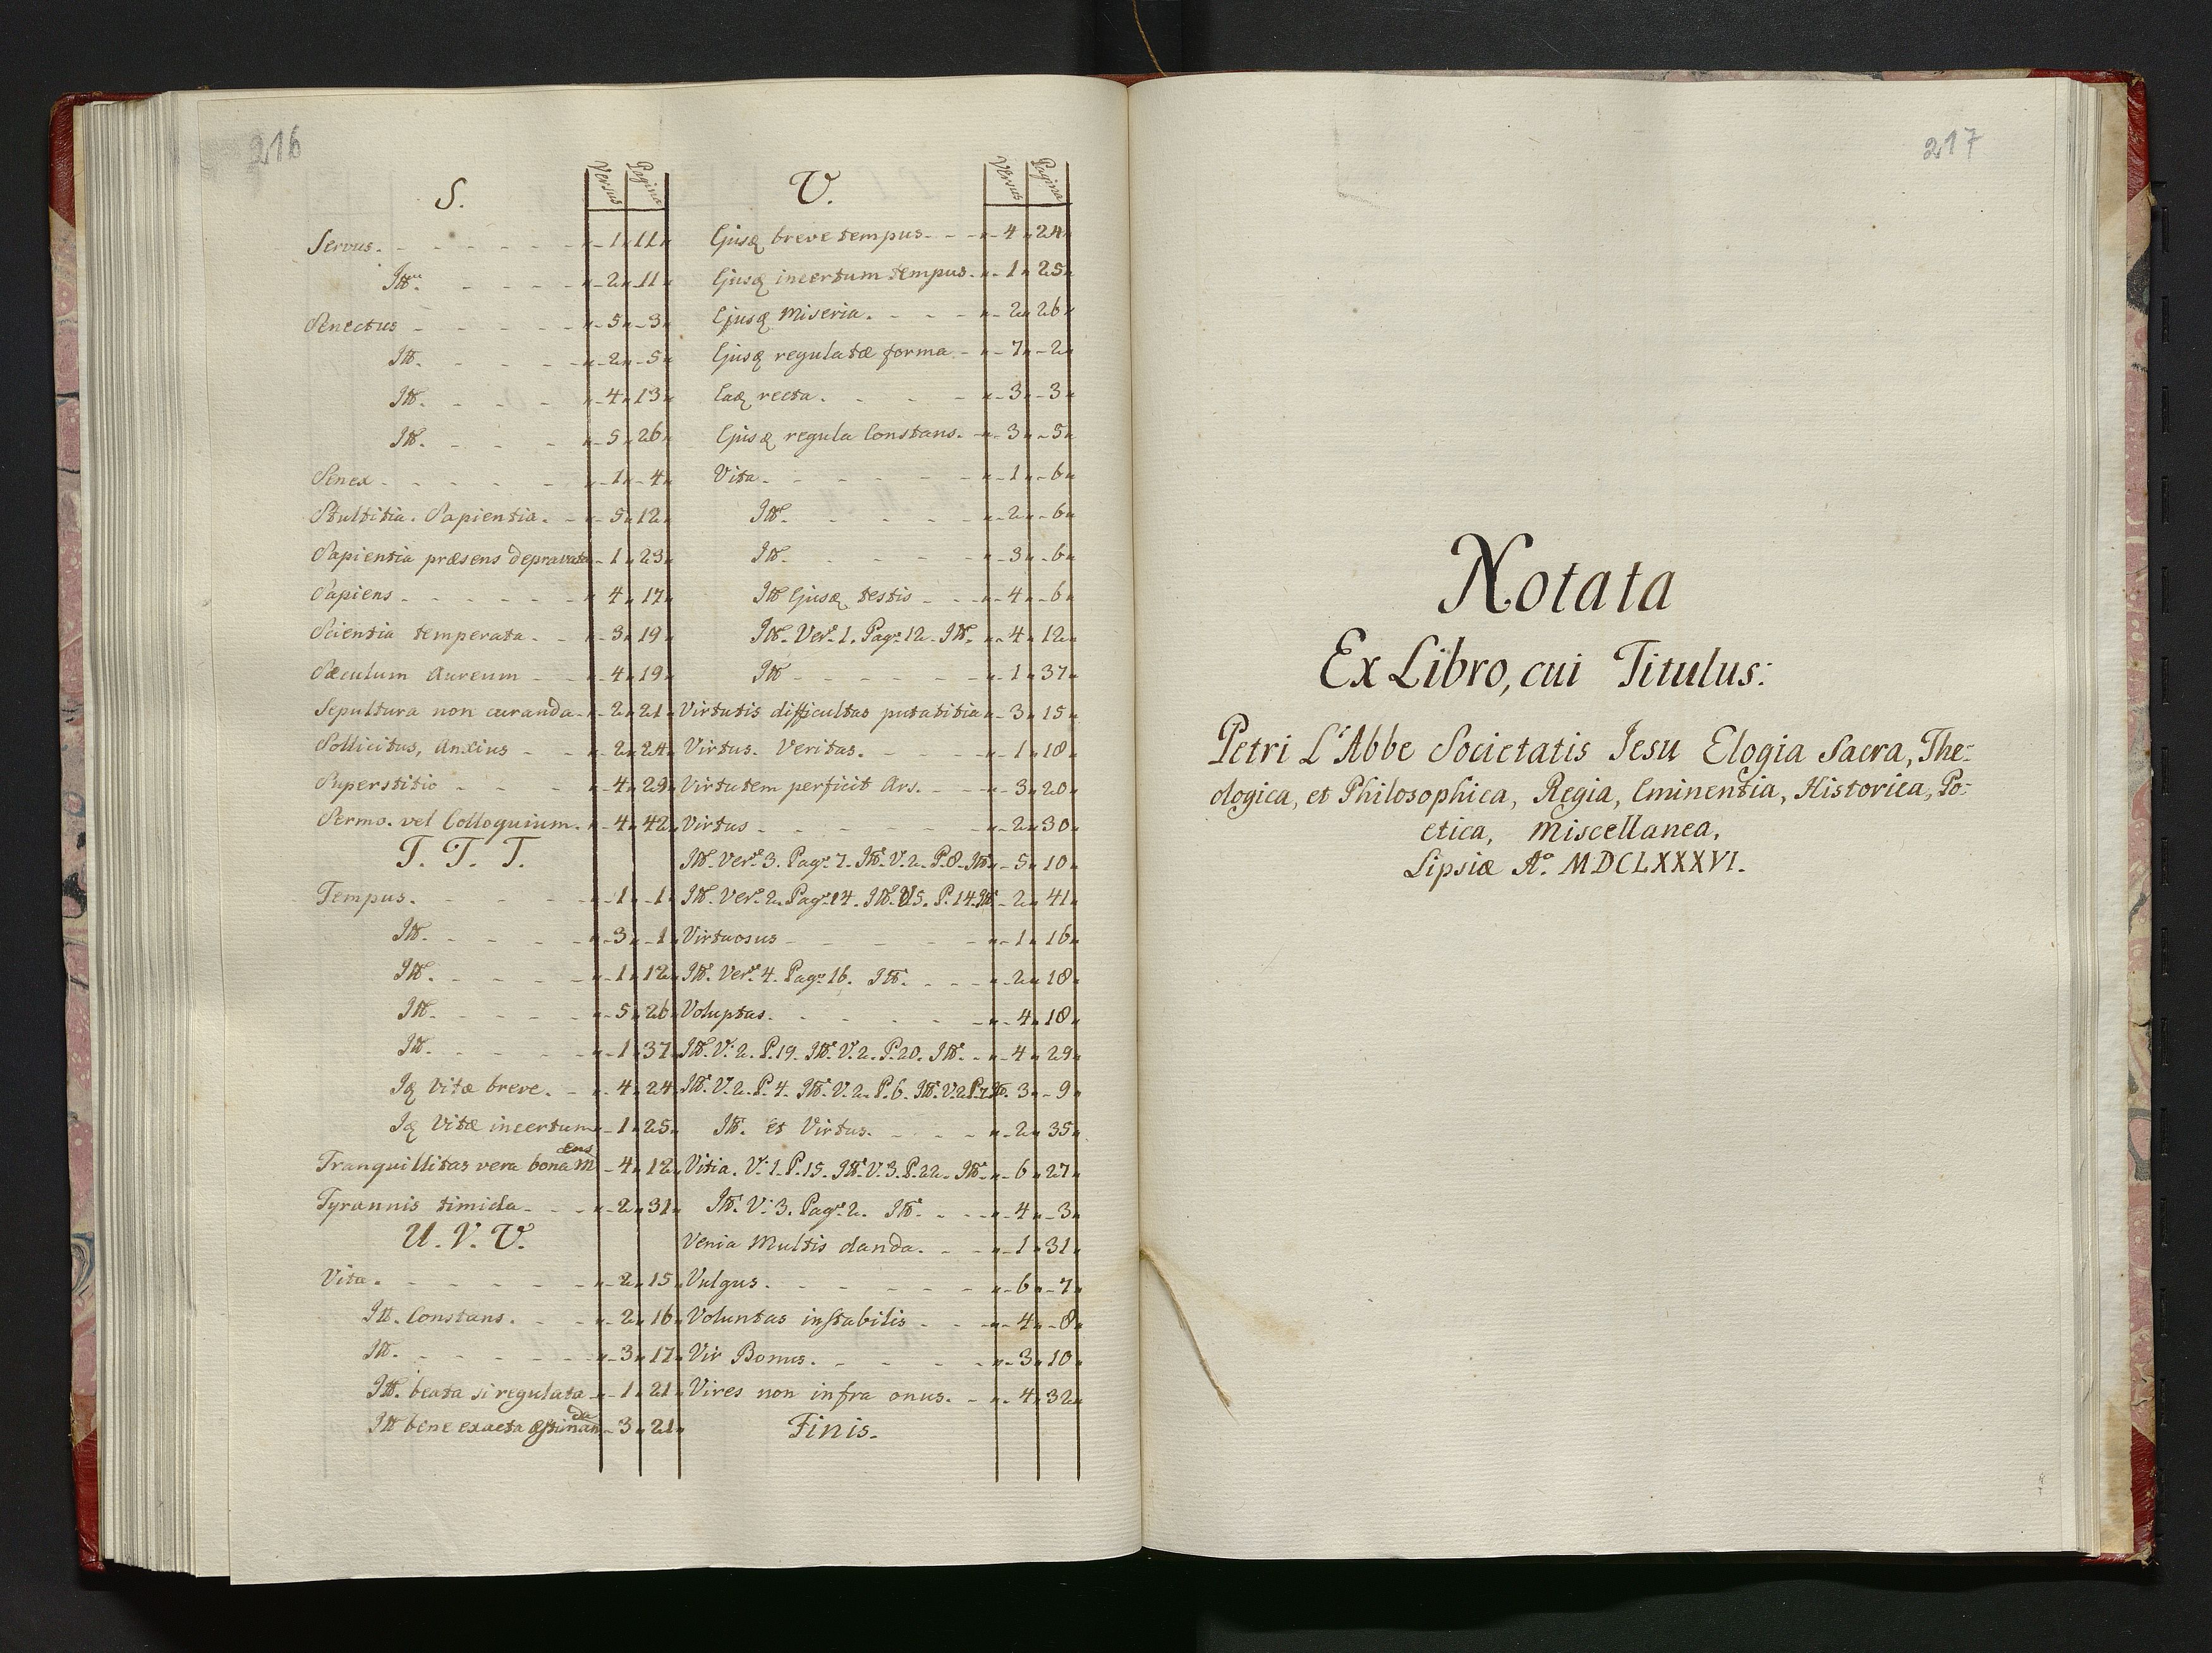 216
S.
Versus Pagina
Servus. 1 11
Itē. 2 11
Senectus 5 3
Itē. 2 5
Itē. 4 13
Itē. 5 26
Senex 1 4
Stultitia. Sapientia. 5 12
Sapientia præsens depravata 1 23
Sapiens 4 17
Scientia temperata. 3 19
Sæculum Aureum 4 19
Sepultura non curanda 2 21
Sollicitus, Anxius 2 24
Superstitio 4 29
Sermo. vel Colloquium. 4 42
T. T. T.
Tempus. 1 1
Itē. 3 1
Itē. 1 12
Itē. 5 26
Itē. 1 37
Iq vitæ breve. 4 24
Iq Vitæ incertum 1 25
Tranquillitas vera bona Mens 4 12
Tyrannis timida 2 31
U. V. V.
Vita. 2 15
Itē. Constans. 2 16
Itē. 3 17
Itē. beata si regulata 1 21
Itē bene exacta æstimanda 3 21
V.
Versus Pagina
Ejusq breve tempus 4 24
Ejusq incertum tempus. 1 25
Ejusq Miseria. 2 26
Ejusq regulatæ forma 7 2
Eaq recta. 3 3
Ejusq regula Constans. 3 5
Vita 1 6
Itē. 2 6
Itē. 3 6
Itē Ejusq testis 4 6
Itē. Vers. 1. Pag. 12. Itē. 4 12
Itē 1 37
Virtutis difficultas putatitia 3 15
Virtus. Veritas. 1 18
Virtutem perficit Ars. 3 20
Virtus 2 30
Itē. Vers. 3. Pag. 7. Itē. V. 2. P. 8. Itē 5 10
Itē. Vers. 2. Pag. 14. Itē. V 5. P. 14. Itē 2 41
Virtuosus 1 16
Itē. Vers. 4. Pag. 16. Itē. 2 18
Voluptas. 4 18
Itē. V. 2. P. 19. Itē. V. 2. P. 20. Itē. 4 29
Itē. V. 2. P. 4. Itē. V. 2. P. 6. Itē. V. 2 P. 7 Itē. 3 9
Itē. et Virtus. 2 35
Vitia. V. 1. P. 15. Itē. V. 3. P. 22. Itē 6 27
Itē. V. 3. Pag. 2. Itē. 4 3
Venia Multis danda. 1 31
Vulgus. 6 7
Voluntas instabilis 4 8
Vir Bonus. 3 10
Vires non infra onus. 4 32
Finis.
217
Notata
Ex Libro, cui Titulus:
Petri L'Abbe Societatis Iesu Elogia Sacra, The-
ologica, et Philosophica, Regia, Eminentia, Historica, Po-
etica, Miscellanea,
Lipsiæ Aº. MDCLXXXVI.